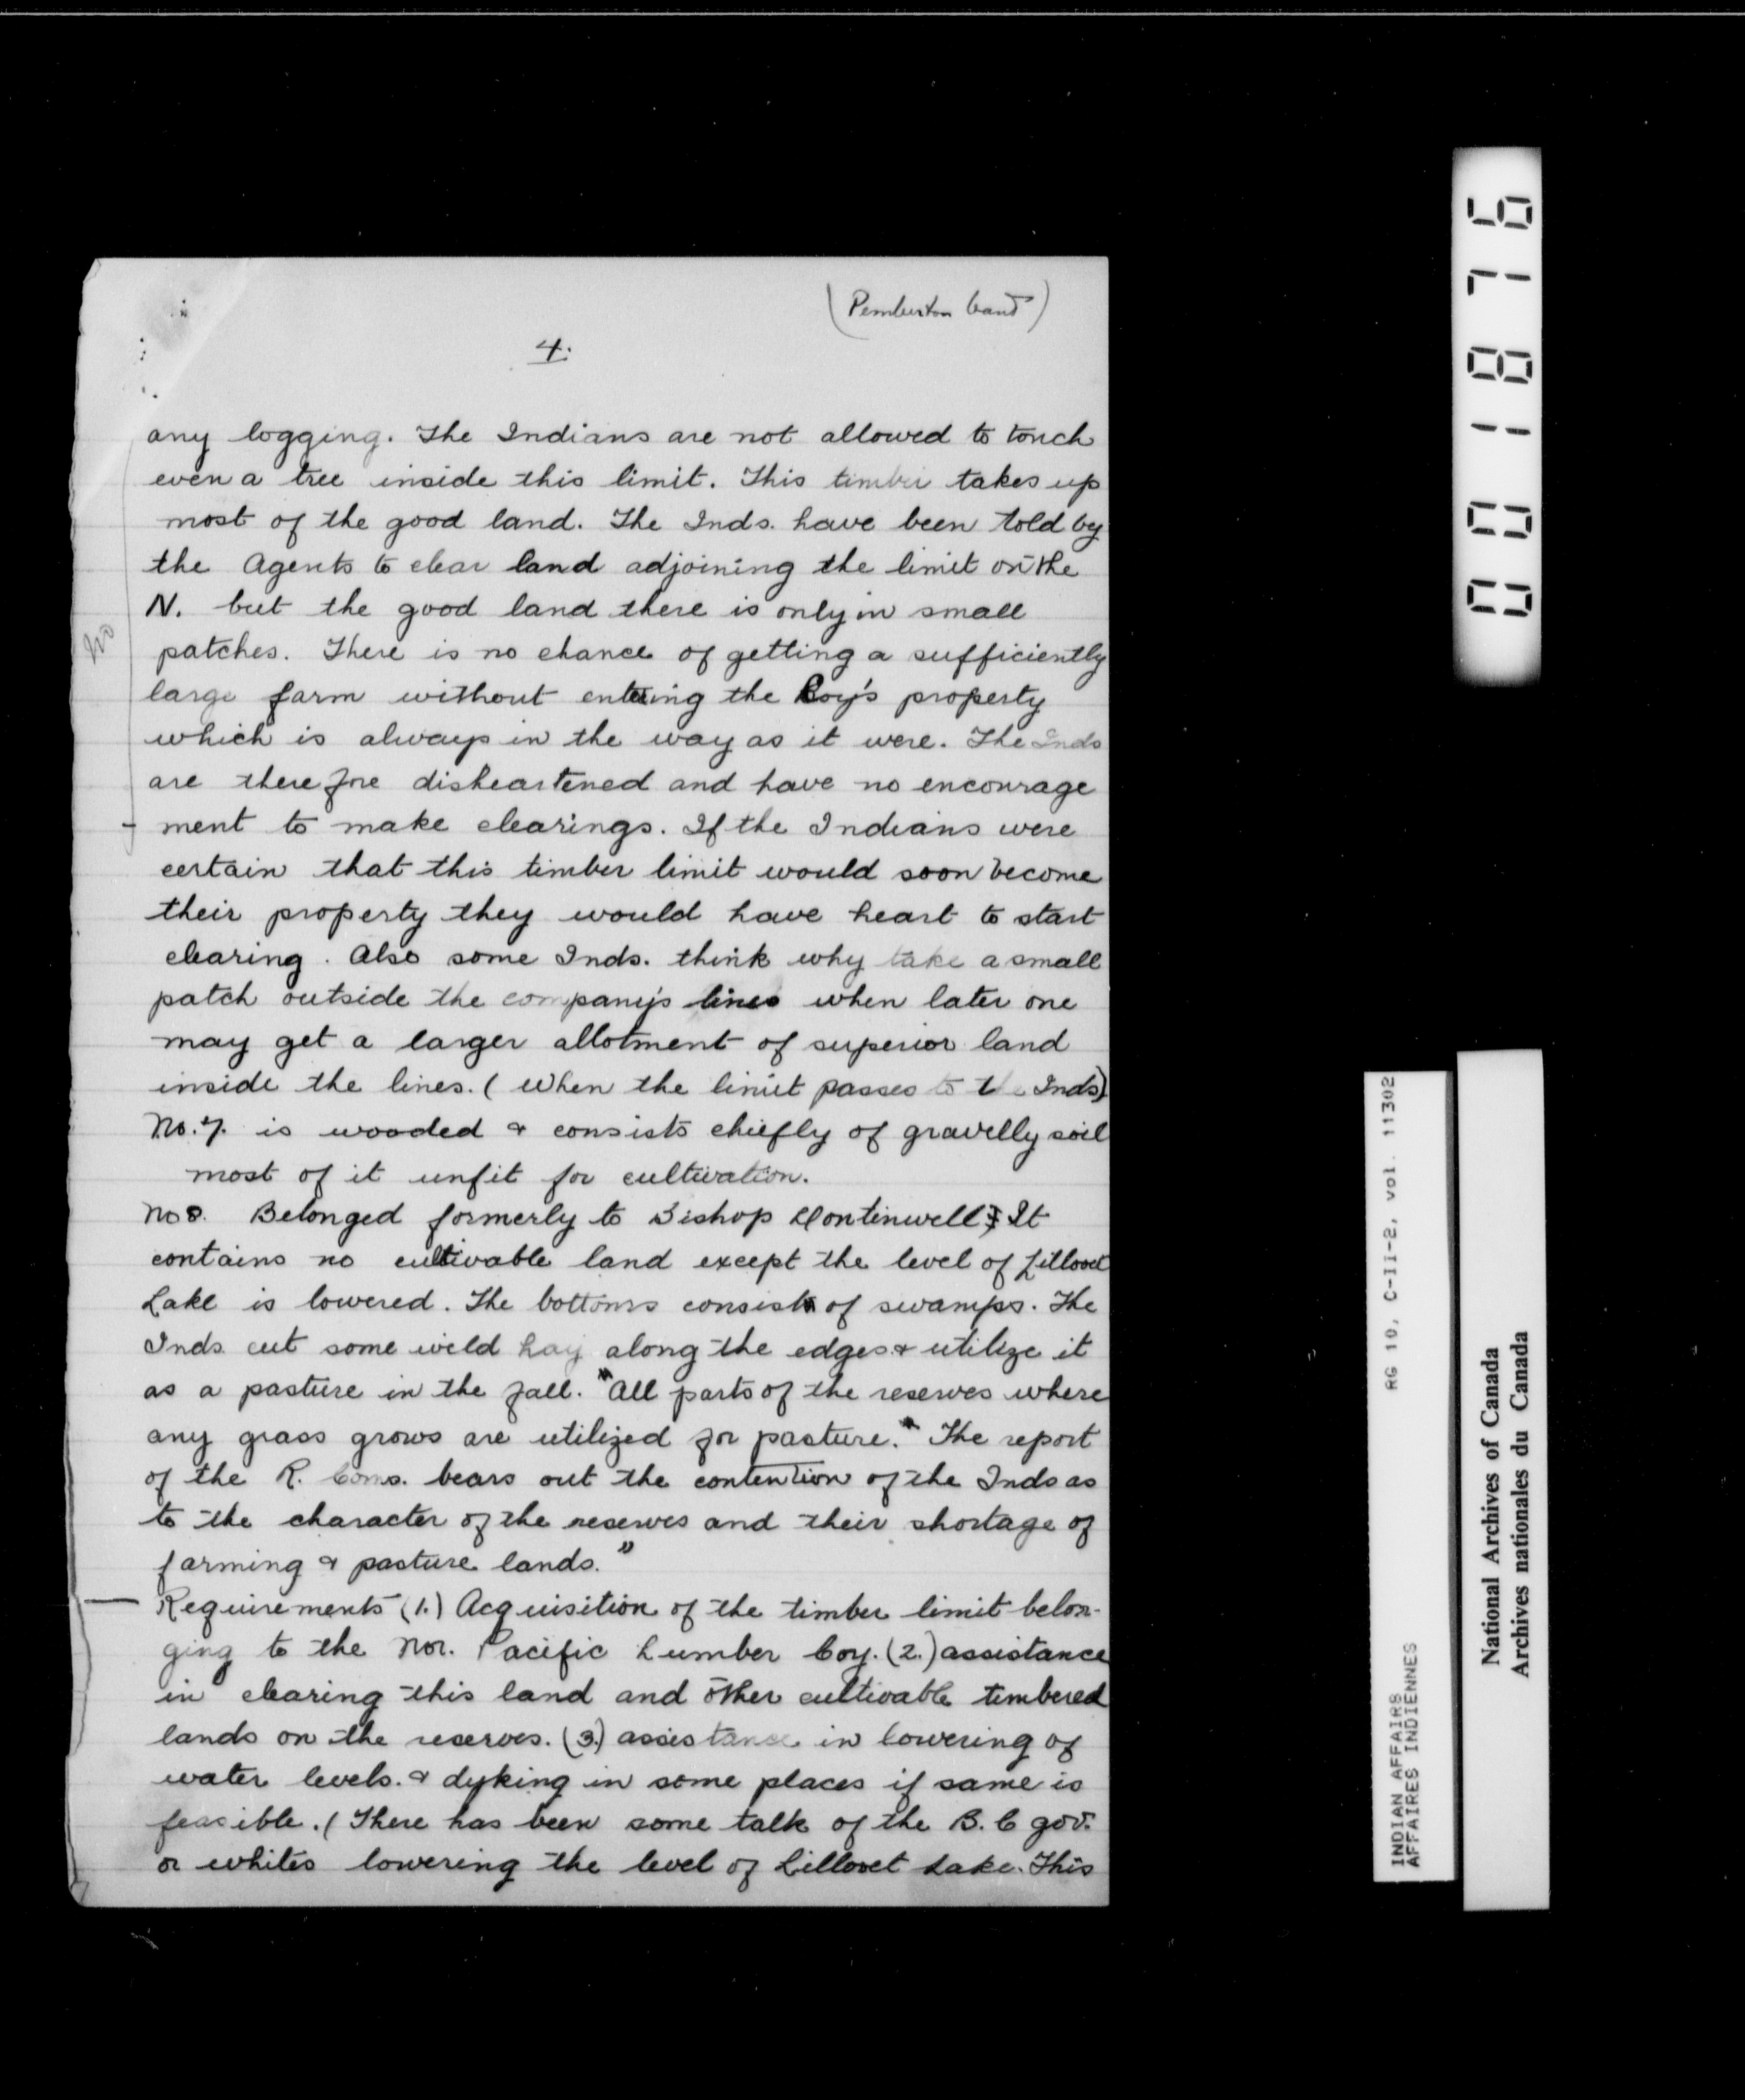 (Pemberton band)
4.
any logging. The Indians are not allowed to touch
even a tree inside this limit. This timber takes up
most of the good land. The Inds. have been told by
the Agents to clear land adjoining the limit on the
N. but the good land there is only in small
no
patches. There is no chance of getting a sufficiently
large farm without entering the Coy's property
which is always in the way as it were. The Inds
are therefore disheartened and have no encourage
ment to make clearings. If the Indians were
certain that this timber limit would soon become
their property they would have heart to start
clearing. Also some Inds. think why take a small
patch outside the company's lines when later one
may get a larger allotment of superior land
inside the lines. (When the limit passes to the Inds)
No. 7. is wooded & consists chiefly of gravelly soil
most of it unfit for cultivation.
No 8. Belonged formerly to Bishop It
contains no cultivable land except the level of Lillooet
Lake is lowered. The bottoms consist of swamps. The
Inds cut some wild hay along the edges & utilize it
as a pasture in the fall. "All parts of the reserves where
any grass grows are utilized for pasture." The report
of the R. Coms. bears out the contention of the Inds as
to the character of the reserves and their shortage of
farming & pasture lands."
Requirements (1.) Acquisition of the timber limit belon-
ging to the Nor. Pacific Lumber Coy. (2.) assistance
in clearing this land and other cultivable timbered
lands on the reserves. (3.) assistance in lowering of
water levels. & dyking in some places if same is
feasible. (There has been some talk of the B. C gov.
or whites lowering the level of Lillooet Lake. This
0001876
RG 10, C-II-2, vol. 11302
INDIAN AFFAIRS
AFFAIRES INDIENNES
National Archives of Canada
Archives nationales du Canada